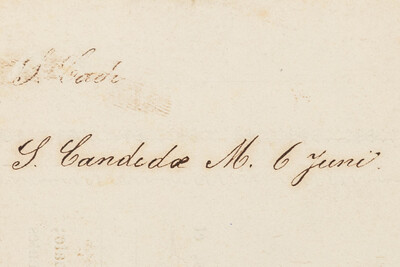 S. Candidæ M. 6 Juni.